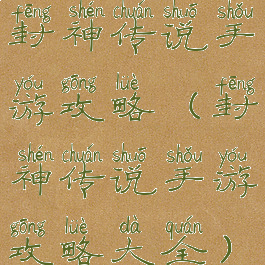 fēng shén chuán shuō shǒu
封神传说手
yóu gōng lüè fēng
游攻略(封
shén chuán shuō shǒu yóu
神传说手游
gōng lüè dà quán
攻略大全)